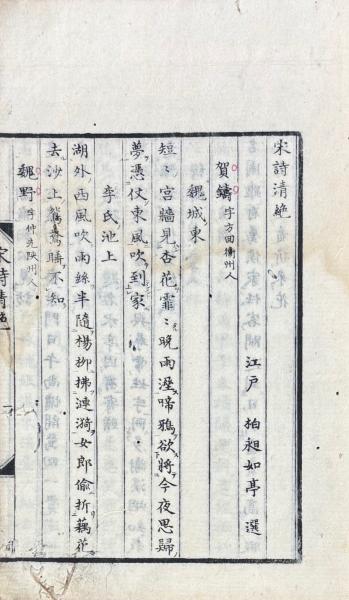 宋詩清絶
江戸 柏昶如亭 選
賀鑄 字方回衞州人
魏城東
短〻宮牆見杏花霏〻晩雨溼啼鴉欲將今夜思歸
夢憑仗東風吹到家
李氏池上
湖外西風吹雨絲半隨楊柳拂漣漪女郎偷折藕花
去沙上鴛鴦睛不知
魏野 字仲先陝州人
宋詩清絶